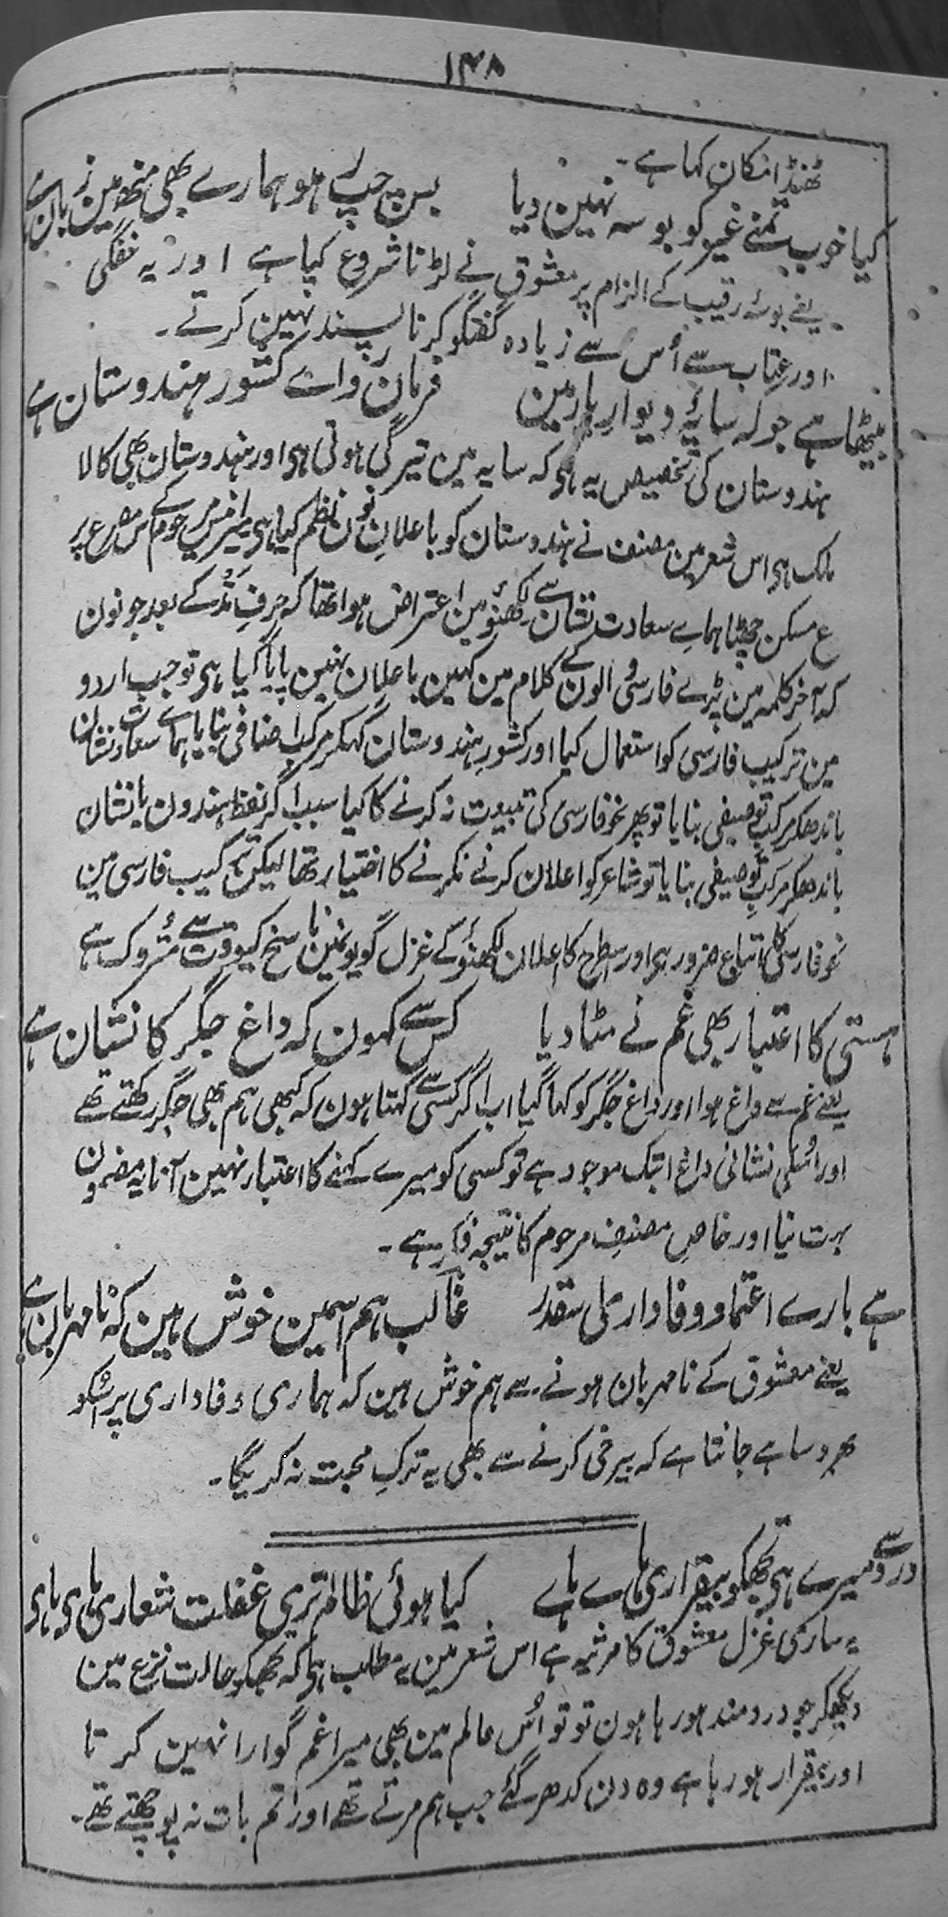 ۱۴۸
ٹھنڈا مکان کہا ہے۔
کیا خوب تمنے غیر کو بوسہ نہین دیا بس چپ رہو ہمارے بھی منھ مین زبان ہے
یعنے بوسۂ رقیب کے الزام پر معشوق نے لڑنا شروع کیا ہے اور یہ خفگی
اور عتاب سے اُس سے زیادہ گفتگو کرنا پسند نہین کرتے۔
بیٹھا ہے جو کہ سایۂ دیوار یار مین فرمان رواے کشور ہندوستان ہے
ہندوستان کی تخصیص یہ ہی کہ سایہ مین تیرگی ہوتی ہی اور ہندوستان بھی کالا
ملک ہی اس شعر مین مصنف نے ہندوستان کو باعلانِ نون نظم کیا ہی میر انیس مرحوم کے اس مصرع پر
ع مسکن چھٹا ہماے سعادت نشان سے لکھنؤ مین اعتراض ہوا تھا کہ حرفِ مد کے بعد جو نون
کہ آخر کلمہ مین پڑے فارسی والون کے کلام مین کہین باعلان نہین پایا گیا ہی تو جب اردو
مین ترکیب فارسی کو استعمال کیا اور کشورِ ہندوستان کہکر مرکب اضافی بنایا یا ہماے سعادت نشان
باندھکر مرکب توصیفی بنایا تو پھر نحو فارسی کی تبعیت نہ کرنے کا کیا سبب اگر لفظ ہندوان یا نشان
باندھکر مرکبِ توصیفی بنایا تو شاعر کو اعلان کرنے نکرنے کا اختیار تھا لیکن ترکیب فارسی مین
نحو فارسی کا اتباع ضرور ہی اور اسطرح کا اعلان لکھنؤ کے غزل گویونمین ناسخ کیوقت سے متروک ہے
ہستی کا اعتبار بھی غم نے مٹا دیا کس سے کہون کہ داغ جگر کا نشان ہے
یعنے غم سے داغ ہوا اور داغ جگر کو کھا گیا اب اگر کسی سے کہتا ہون کہ کبھی ہم بھی جگر رکھتے تھے
اور اُسکی نشانی داغ ابتک موجود ہے تو کسی کو میرے کہنے کا اعتبار نہین آتا یہ مضمون
بہت نیا اور خاص مصنفِ مرحوم کا نتیجہ فکر ہے۔
ہے بارے اعتماد وفاداری اسقدر غالب ہم اسمین خوش ہین کہ نامہربان ہے
یعنے معشوق کے نامہربان ہونے سے ہم خوش ہین کہ ہماری وفاداری پر اُسکو
بھروسا ہے جانتا ہے کہ بیرخی کرنے سے بھی یہ ترکِ محبت نہ کریگا۔
درد سے میرے ہی تجھکو بیقراری ہاے ہاے کیا ہوئی ظالم تری غفلت شعاری ہاے ہاے
یہ ساری غزل معشوق کا مرثیہ ہے اس شعر مین یہ مطلب ہی کہ تجھکو حالت نزع مین
دیکھکر جو دردمند ہو رہا ہون تو تو اُس عالم مین بھی میرا غم گوارا نہین کرتا
اور بیقرار ہو رہا ہے وہ دن کدھر گئے جب ہم مرتے تھے اور تم بات نہ پوچھتے تھے۔